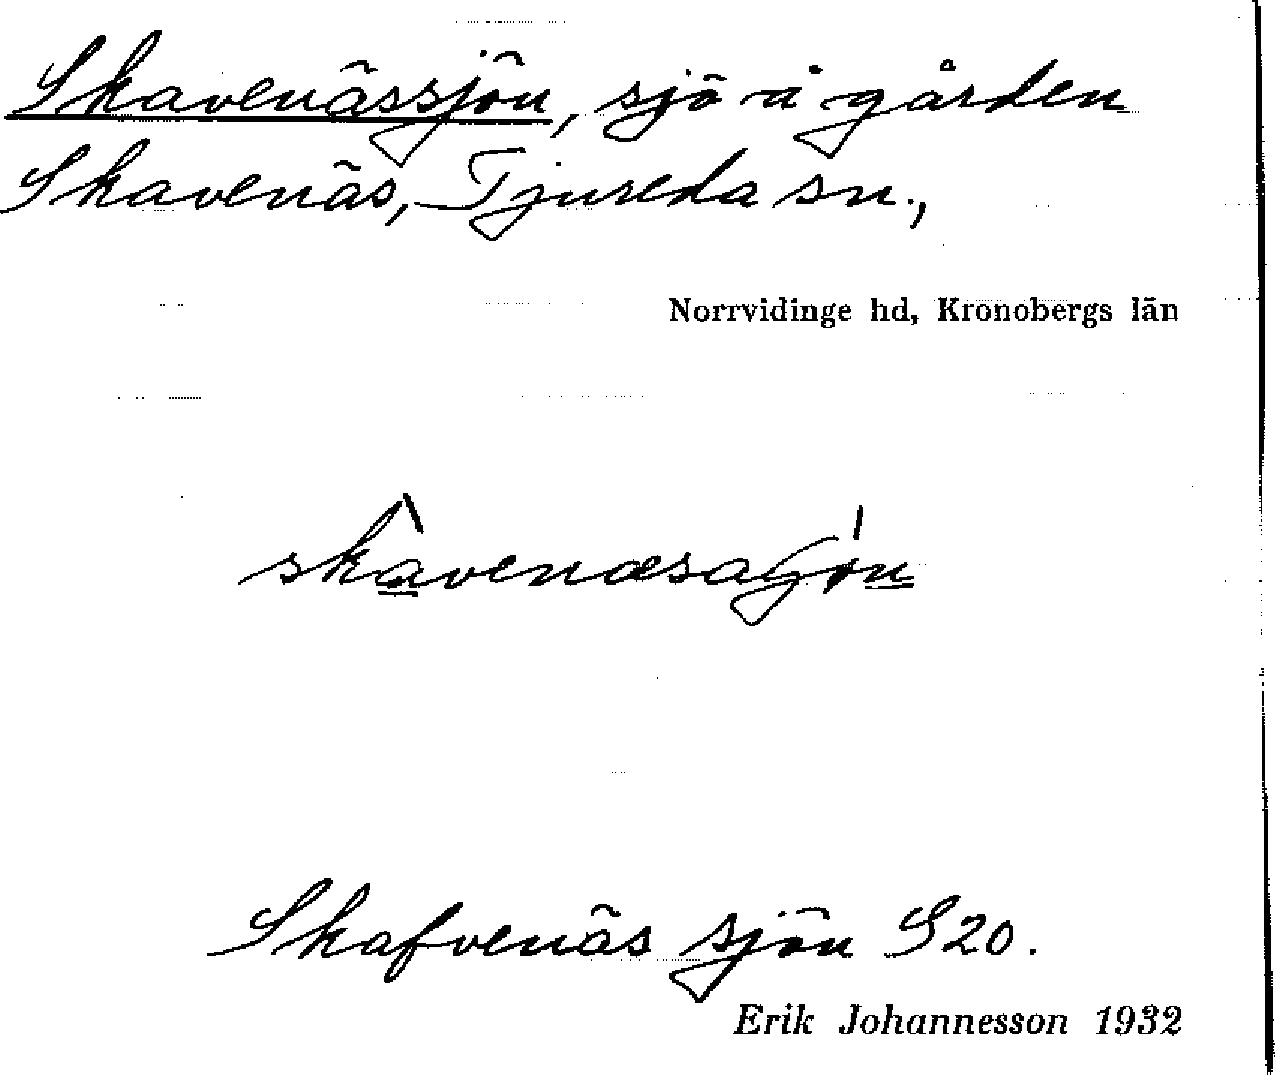 Skavenässjön, sjö å gården
Skavenäs, Tjureda sn.,
Norrvidinge hd, Kronobergs län
Skafvenäs sjön S20.
Erik Johannesson 1932